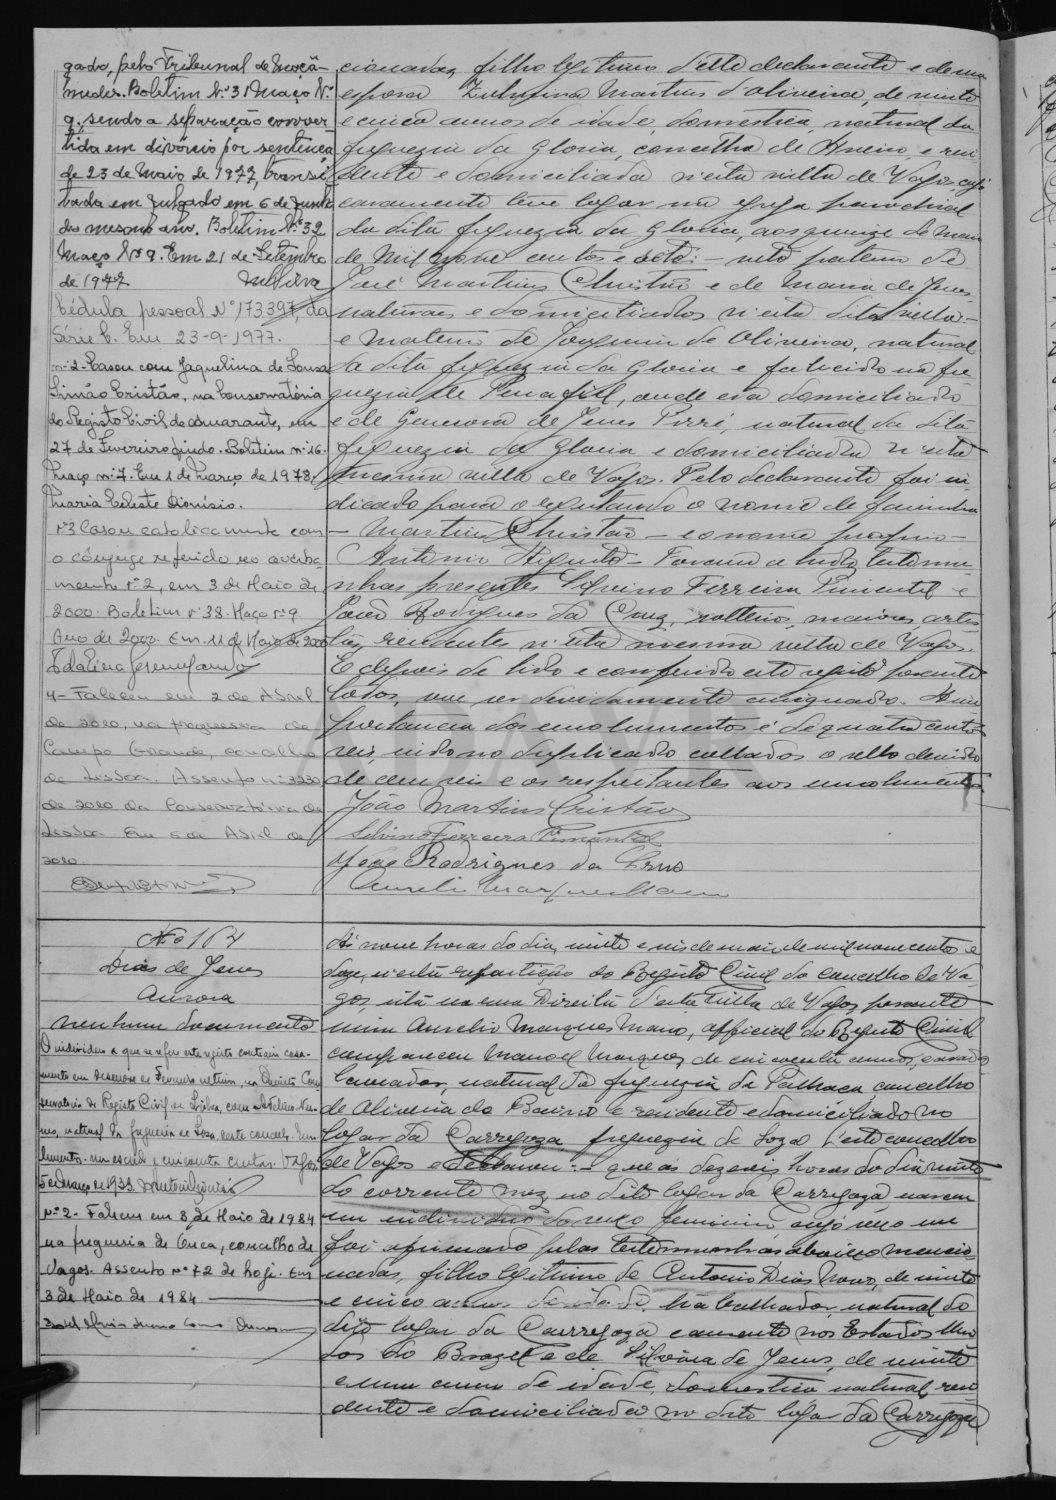 gado, pelo Tribunal de
Boletim Nº 3 Maço Nº
9, sendo a separação conver-
tida em divórcio por sentença
de 23 de Maio de 1977, transi-
tada em julgado em 6 de Junho
do mesmo ano. Boletim Nº 32
Maço Nº 9. Em 21 de Setembro
de 1977
Cédula pessoal Nº 173397, da
Série C. Em 23-9-1977.
nº 2 - Casou com Jaquelina de Sousa
Simão Cristão, na Conservatória
do Registo Civil de Amarante, em
27 de Fevereiro findo. Boletim nº 16.
Maço nº 7. Em 1 de Março de 1978.
Maria Celeste Dionísio.
nº 3 Casou catolicamente com
o cônjuge referido no averba-
mento nº 2, em 3 de Maio de
2000. Boletim nº 38. Maço nº 9
Ano de 2000. Em 11 de Maio de 2000
4 - Faleceu em 2 de Abril
de 2020, na freguesia de
Campo Grande, concelho
de Lisboa. Assento nº 3230
de 2020 da Conservatória de
Lisboa. Em 5 de Abril de
2020.
cionadas, filho legitimo d'elle declarante e de sua
esposa Zulmira Martins d'Oliveira, de vinte
e cinco annos de idade, domestica, natural da
freguezia da Gloria, concelho de Aveiro e resi-
dente e domiciliada n'esta villa de Vagos, cujo
casamento teve logar na egreja parochial
da dita freguezia da Gloria, aos quinze de
de mil nove centos e oito: - neto paterno de
José Martins Christão e de Maria de Jesus,
naturaes e domiciliados n'esta dita villa -
e materno de Joaquim de Oliveira, natural
da dita freguezia da Gloria e falecido na fre-
guezia de Penafiel, onde era domiciliado
e de Genoveva de Jesus Pirré, natural da dita
freguezia da Gloria e domiciliada n'esta
mesma villa de Vagos. Pelo declarante foi in-
dicado para o registando o nome de familia
- Martins Christão - e o nome proprio -
Antonio Augusto - Foram a tudo testemu-
nhas presentes Silvino Ferreira Pimentel e
João Rodrigues da Cruz, solteiros, maiores,
residentes n'esta mesma villa de Vagos.
E depois de lido e conferido este registo perante
todos, vae ser devidamente assignado. A im-
portancia dos emolumentos é de quatro centos
reis, indo no duplicado collados o sello devido
de cem reis e os respeitantes aos emolumentos
João Martins Cristão
Silvino Ferreira Pimentel
João Rodrigues da Cruz
Aurelio Marques Mano
Nº 164
Dias de Jesus
Aurora
nenhum documento
O individuo a que se refere este registo contraiu casa-
mento em de Fevereiro ultimo, na Quinta Con-
servatoria do Registo Civil de Lisboa, com
natural da freguesia de Soza, deste concelho.
Vagos
de 1933.
Nº 2 - Faleceu em 3 de Maio de 1984
na freguesia de Ouca, concelho de
Vagos. Assento nº 72 de hoje. Em
3 de Maio de 1984
Ás nove horas do dia vinte e seis de maio de mil nove centos e
doze, n'esta repartição do Registo Civil do concelho de Va-
gos, sita na rua Direita d'esta Villa de Vagos, perante
mim Aurelio Marques Mano, official do Registo Civil
compareceu Manoel Marques, de cincoenta annos, casado
lavrador, natural da freguezia da Palhaça, concelho
de Oliveira do Bairro e residente e domiciliado no
logar da Carregoza freguezia de Soza d'este concelho
de Vagos e declarou: - que ás dezeseis horas do dia vinte
do corrente mez, no dito logar da Carregoza nasceu
um individuo do sexo feminino, cujo sexo me
foi afirmado pelas testemunhas abaixo mencio-
nadas, filho legitimo de Antonio Dias Novo, de vinte
e cinco annos de idade, trabalhador, natural do
dito logar da Carregoza e ausente nos Estados Uni-
dos do Brazil e de Silvina de Jesus, de vinte
e um annos de idade, domestica natural resi-
dente e domiciliada no dito logar da Carregoza